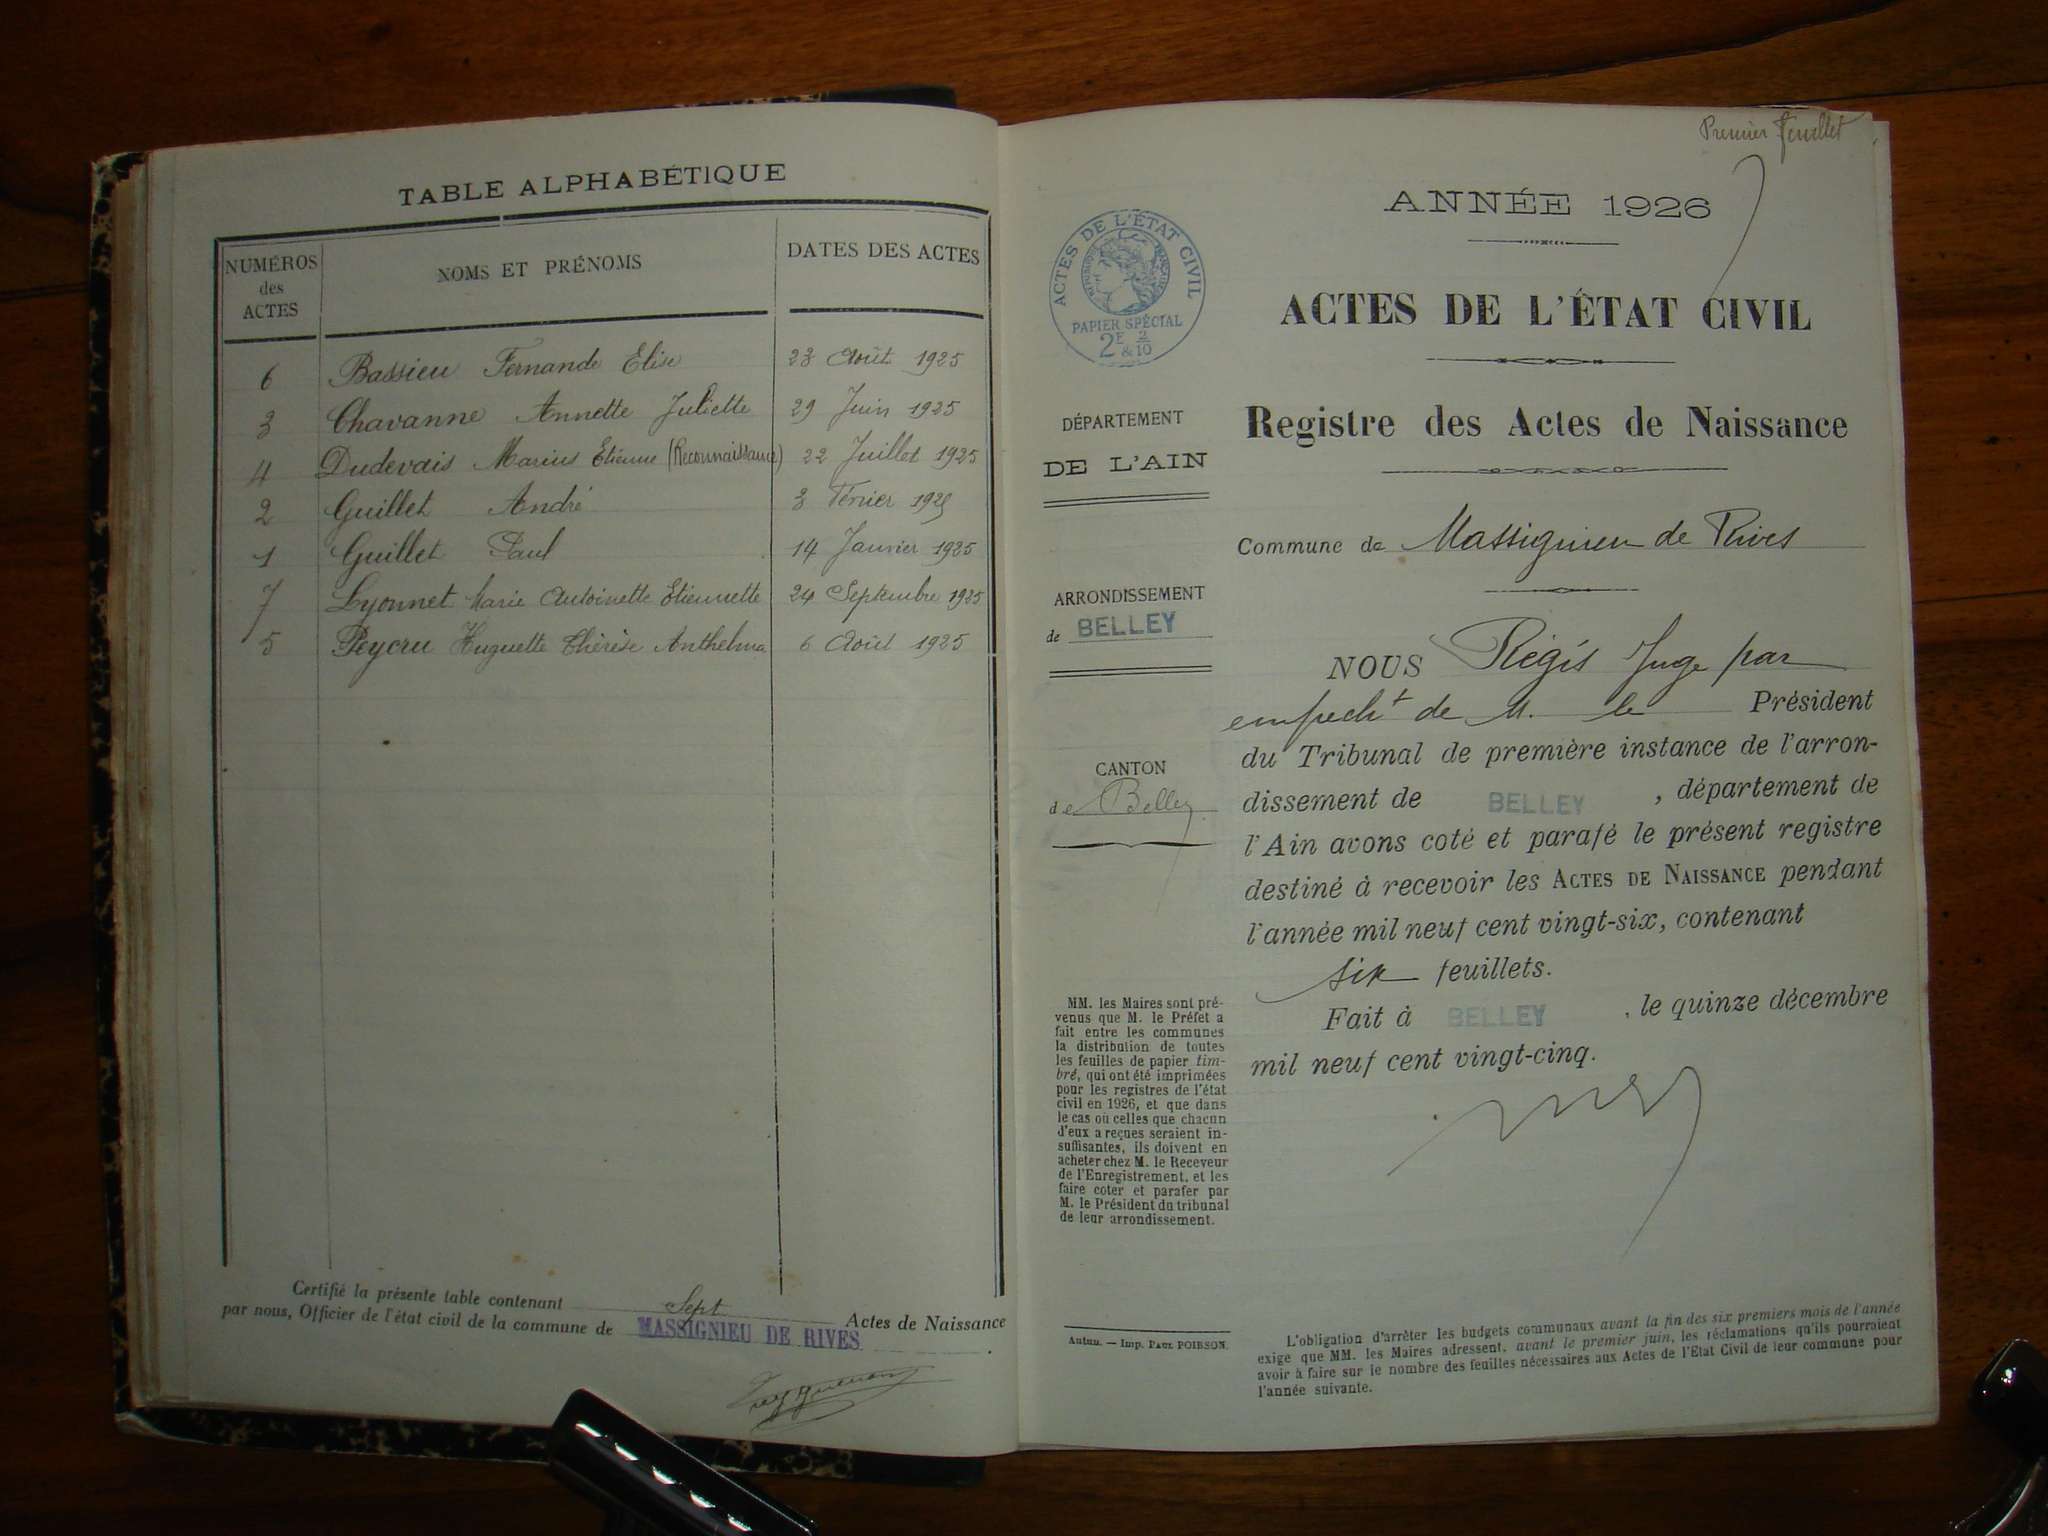 TABLE ALPHABÉTIQUE
NUMÉROS
des
ACTES
NOMS ET PRÉNOMS
DATES DES ACTES
6 Bassieu Fernande Elise 23 Août 1925
3 Chavanne Annette Juliette 29 Juin 1925
4 Dudevais Marius Etienne (Reconnaissance) 22 Juillet 1925
2 Guillet André 3 Février 1925
1 Guillet Paul 14 Janvier 1925
7 Lyonnet Marie Antoinette Etiennette 24 Septembre 1925
5 Peycru Huguette Thérèse Anthelma 6 Août 1925
Certifié la présente table contenant Sept Actes de Naissance
par nous, Officier de l'état civil de la commune de MASSIGNIEU DE RIVES
Premier feuillet
ANNÉE 1926
ACTES DE L'ÉTAT CIVIL
PAPIER SPÉCIAL
2E & 2/10
ACTES DE L'ÉTAT CIVIL
Registre des Actes de Naissance
DÉPARTEMENT
DE L'AIN
Commune de Massignieu de Rives
ARRONDISSEMENT
de BELLEY
CANTON
de Belley
NOUS Régis Juge par
empecht de M. le Président
du Tribunal de première instance de l'arron-
dissement de BELLEY, département de
l'Ain avons coté et parafé le présent registre
destiné à recevoir les ACTES DE NAISSANCE pendant
l'année mil neuf cent vingt-six, contenant
six feuillets.
Fait à BELLEY, le quinze décembre
mil neuf cent vingt-cinq.
MM. les Maires sont pré-
venus que M. le Préfet a
fait entre les communes
la distribution de toutes
les feuilles de papier tim-
bré, qui ont été imprimées
pour les registres de l'état
civil en 1926, et que dans
le cas où celles que chacun
d'eux a reçues seraient in-
suffisantes, ils doivent en
acheter chez M. le Receveur
de l'Enregistrement, et les
faire coter et parafer par
M. le Président du tribunal
de leur arrondissement.
Autun. — Imp. PAUL POIRSON.
L'obligation d'arrêter les budgets communaux avant la fin des six premiers mois de l'année
exige que MM. les Maires adressent, avant le premier juin, les réclamations qu'ils pourraient
avoir à faire sur le nombre des feuilles nécessaires aux Actes de l'Etat Civil de leur commune pour
l'année suivante.